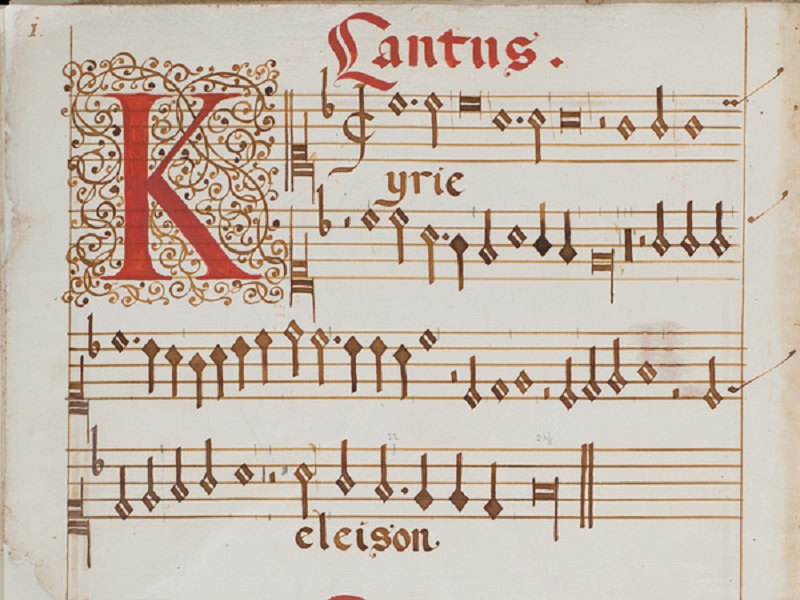 1
Cantus.
Kyrie
eleison